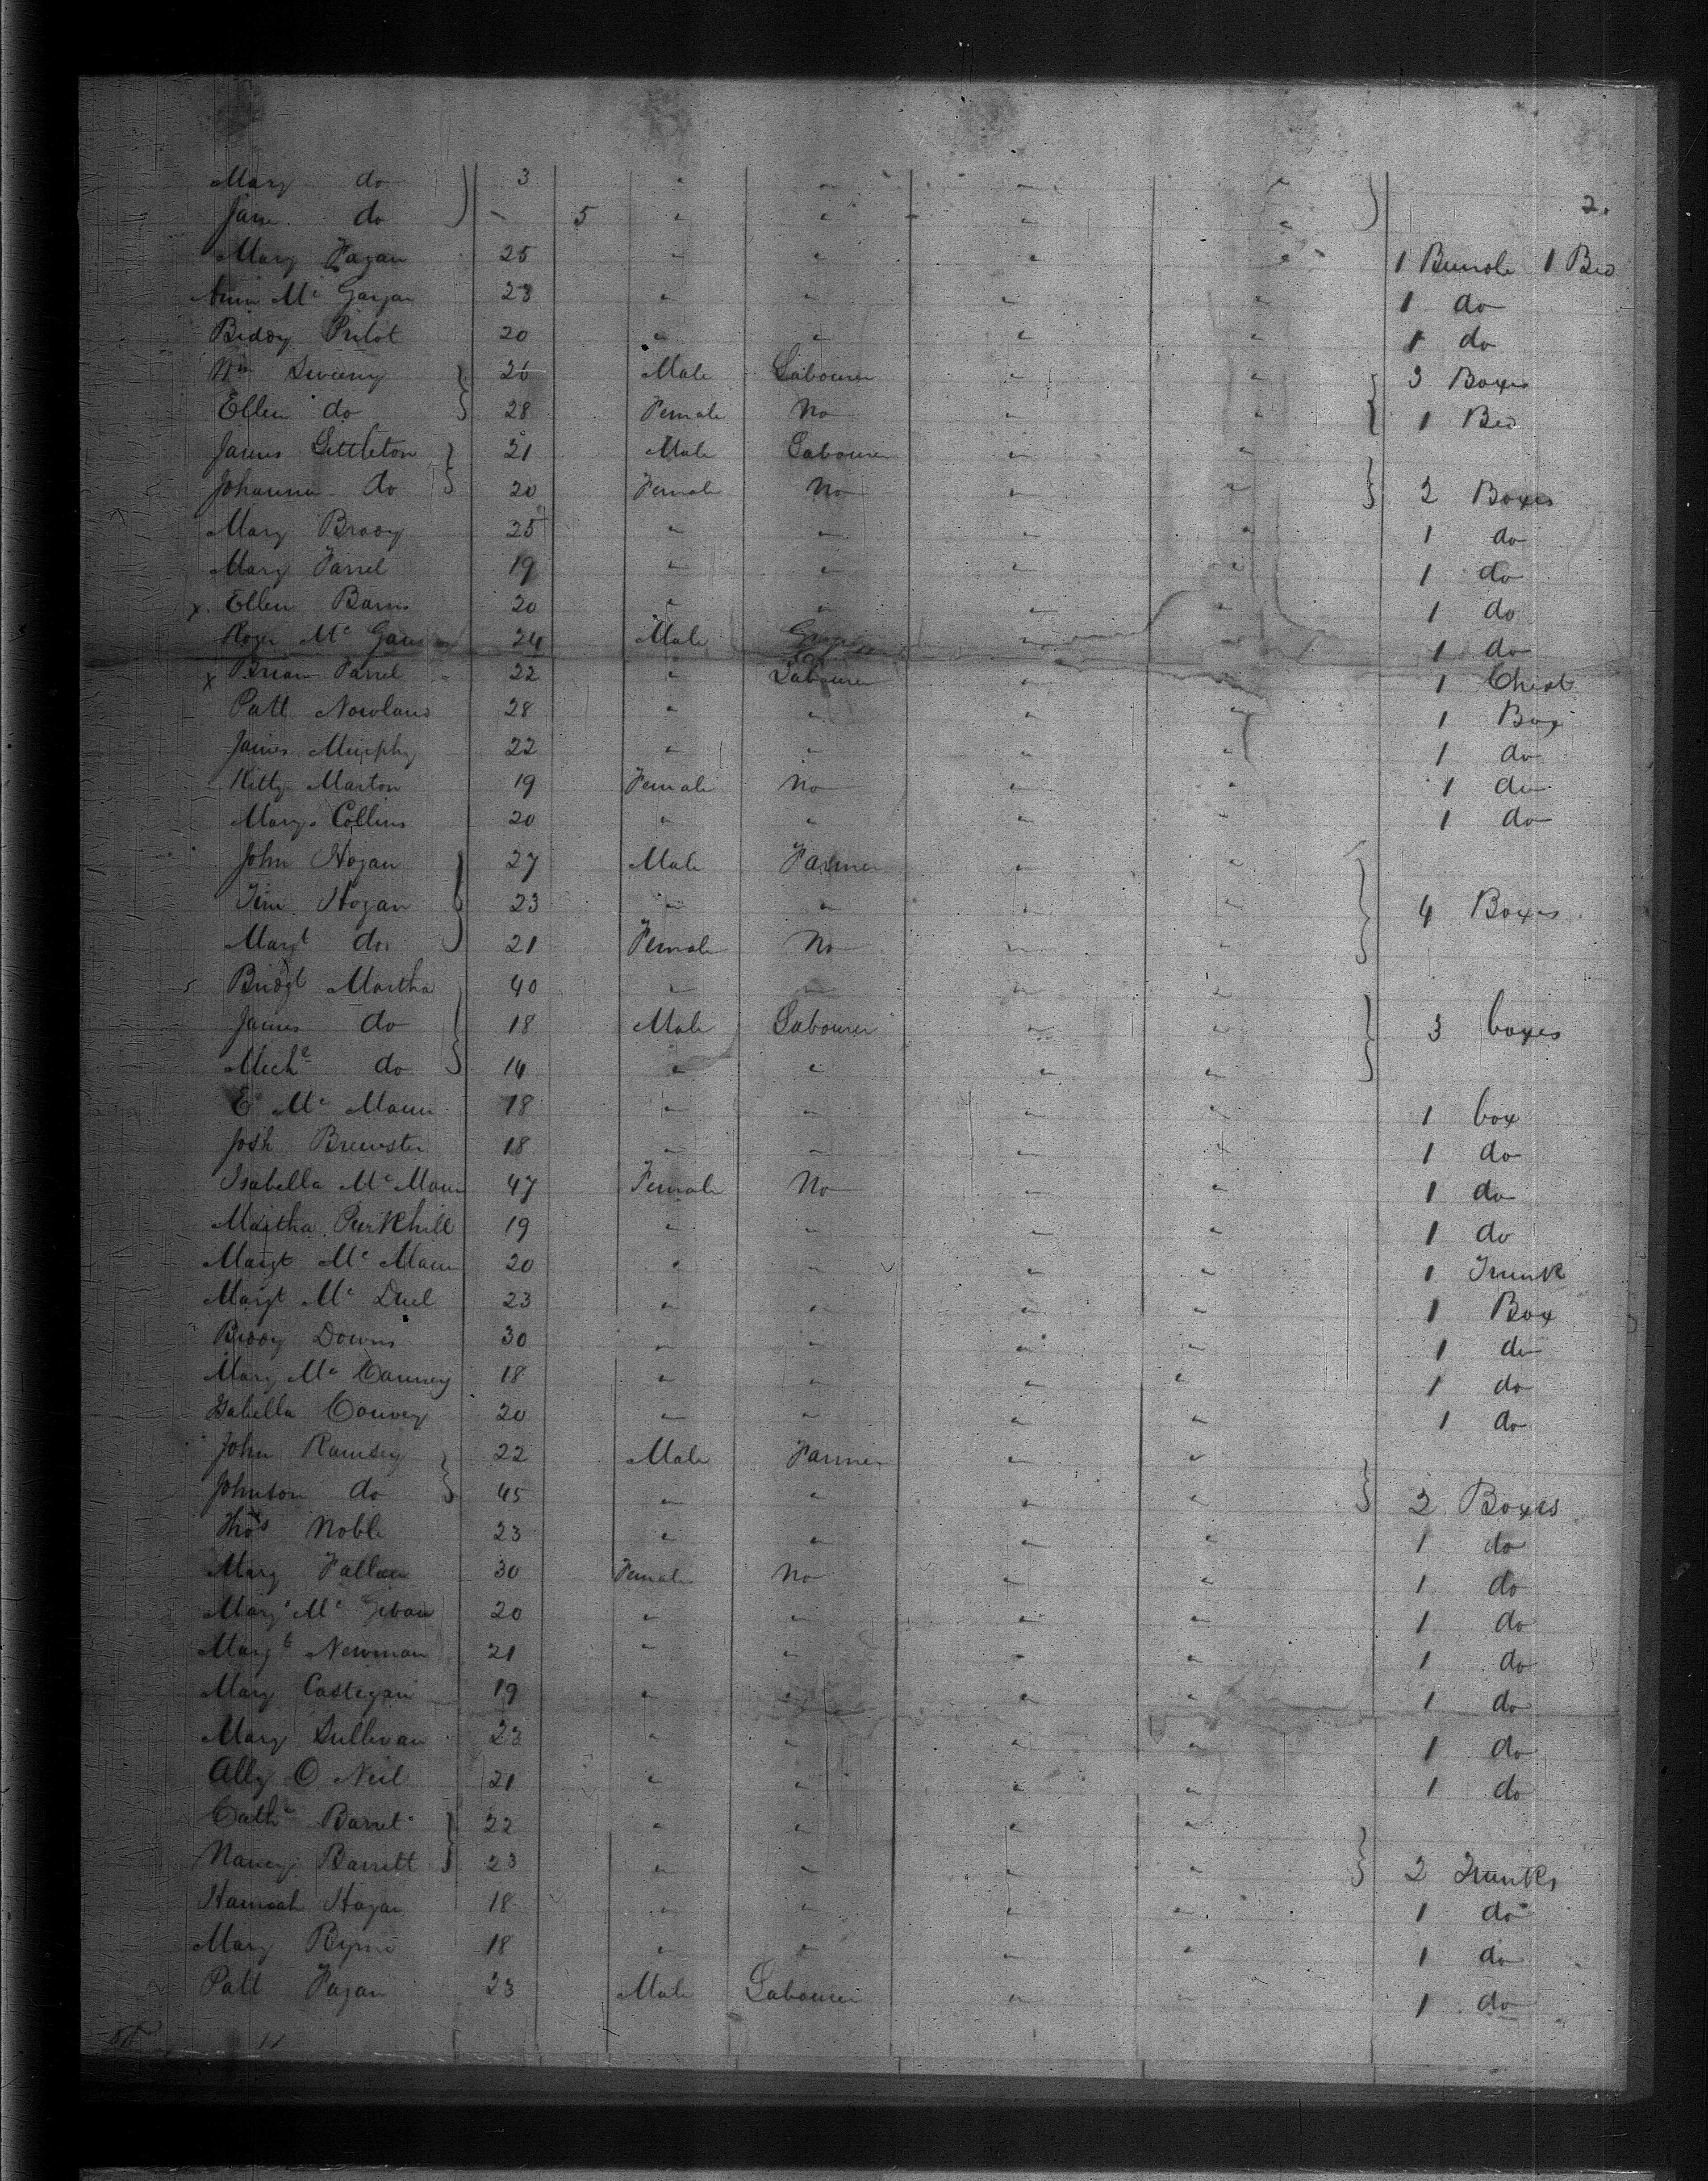 Mary do 3 " " " "
2.
Jane do - 5 " " " "
Mary Fagan 25 " " " " 1 Bundle 1 Bed
Ann Mc Gargan 23 " " " " 1 do
Biddy Prilot 20 " " " " 1 do
Wm Sweeny 26 Male Labourer " " 3 Boxes
Ellen do 28 Female No " " 1 Bed
James Littleton 21 Male Labourer " "
Johanna do 20 Female No " " 2 Boxes
Mary Brady 25 " " " " 1 do
Mary Farrel 19 " " " " 1 do
x Ellen Barns 20 " " " " 1 do
Roger Mc 24 Male " " 1 do
x Brian Farrel 22 " Labourer " " 1 Chest
Patt Nowland 28 " " " " 1 Box
James Murphy 22 " " " " 1 do
Kitty Marton 19 Female No " " 1 do
Mary Collins 20 " " " " 1 do
John Hogan 27 Male Farmer " "
Tim Hogan 23 " " " " 4 Boxes
Margt do 21 Female No " "
Bridgt Martha 40 " " " "
James do 18 Male Labourer " " 3 boxes
Miche do 14 " " " "
E Mc Mann 18 " " " " 1 box
Josh Brewster 18 " " " " 1 do
Isabella Mc Mann 47 Female No " " 1 do
Martha Purkhill 19 " " " " 1 do
Margt Mc Mann 20 " " " " 1 Trunk
Margt Mc Duel 23 " " " " 1 Box
Biddy Downs 30 " " " " 1 do
Mary Mc Canney 18 " " " " 1 do
Isabella Convey 20 " " " " 1 do
John Ramsey 22 Male Farmer " "
Johnson do 45 " " " " 2 Boxes
Thos Noble 23 " " " " 1 do
Mary Fallan 30 Female No " " 1 do
Mary Mc Givan 20 " " " " 1 do
Margt Newman 21 " " " " 1 do
Mary Castigan 19 " " " " 1 do
Mary Sullivan 23 " " " " 1 do
Ally O Neil 21 " " " " 1 do
Cathe Barret 22 " " " "
Nancy Barrett 23 " " " " 2 Trunks
Hannah Hagan 18 " " " " 1 do
Mary Byrne 18 " " " " 1 do
Patt Fagan 23 Male Labourer " " 1 do